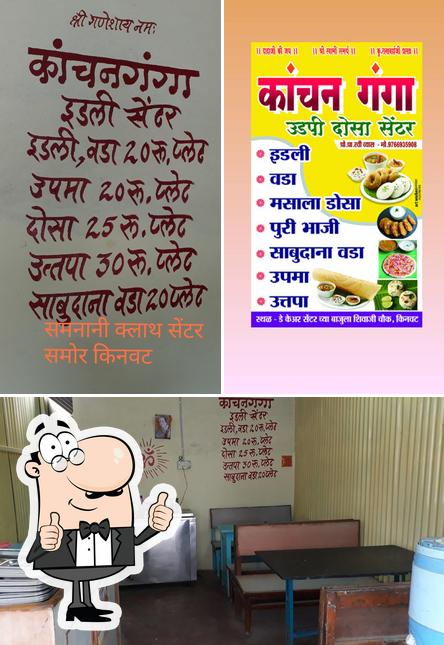 श्री गणेशाय नमः
कांचनगंगा
इडली सेंटर
इडली,वडा २०रू.प्लेट
उपमा २०रू.प्लेट
दोसा २५ रू.प्लेट
उत्तपा ३०रू.प्लेट
साबुदाना वडा २०प्लेट
समनानी क्लाथ सेंटर
समोर किनवट
कांचन गंगा
उडपी दोसा सेंटर
इडली
वडा
मसाला डोसा
पुरी भाजी
साबुदाना वडा
उपमा
उत्तपा
स्थळ - डे केअर सेंटर च्या बाजुला शिवाजी चौक, किनवट
कांचनगंगा
इडली सेंटर
इडली,वडा २०रू.प्लेट
उपमा २०रू.प्लेट
दोसा २५रू.प्लेट
उत्तपा ३०रू.प्लेट
साबुदाना वडा २०प्लेट